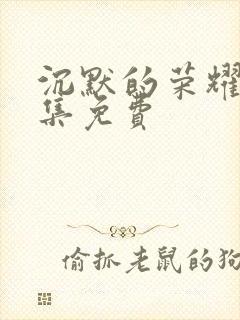 沉默的荣耀
集免费
偷抓老鼠的狗